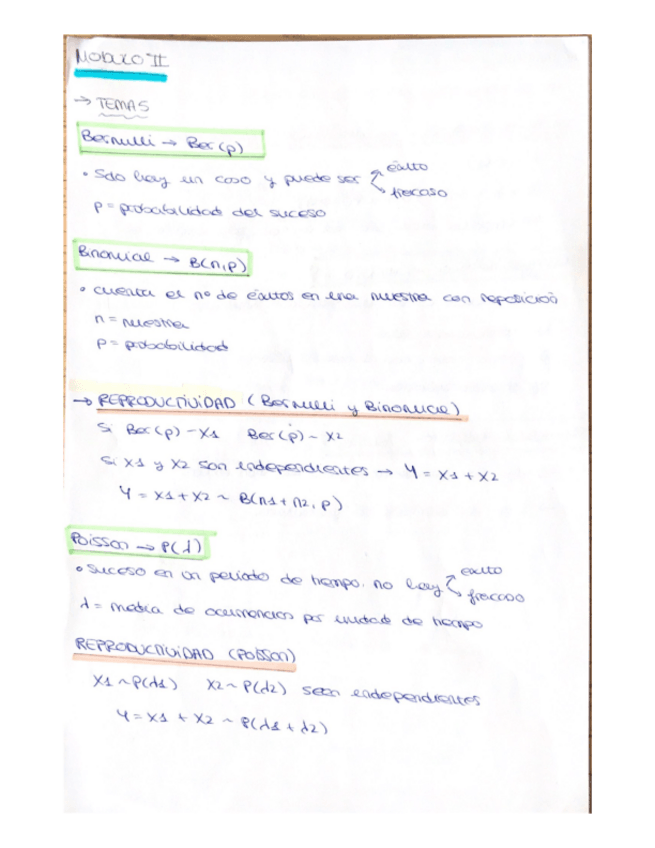 MODULO II
→ TEMAS
Bernulli → Ber(p)
• Solo hay un caso y puede ser éxito
fracaso
p = probabilidad del suceso
Binomial → B(n,p)
• cuenta el nº de éxitos en una muestra con repetición
n = muestra
p = probabilidad
→ REPRODUCTIVIDAD (Bernulli y Binomial)
Si Ber(p) ~ X1 Ber(p) ~ X2
Si X1 y X2 son independientes → Y = X1 + X2
Y = X1 + X2 ~ B(n1 + n2, p)
Poisson → P(λ)
• Suceso en un período de tiempo. no hay éxito
fracaso
λ = media de ocurrencias por unidad de tiempo
REPRODUCTIVIDAD (Poisson)
X1 ~ P(λ1) X2 ~ P(λ2) sean independientes
Y = X1 + X2 ~ P(λ1 + λ2)